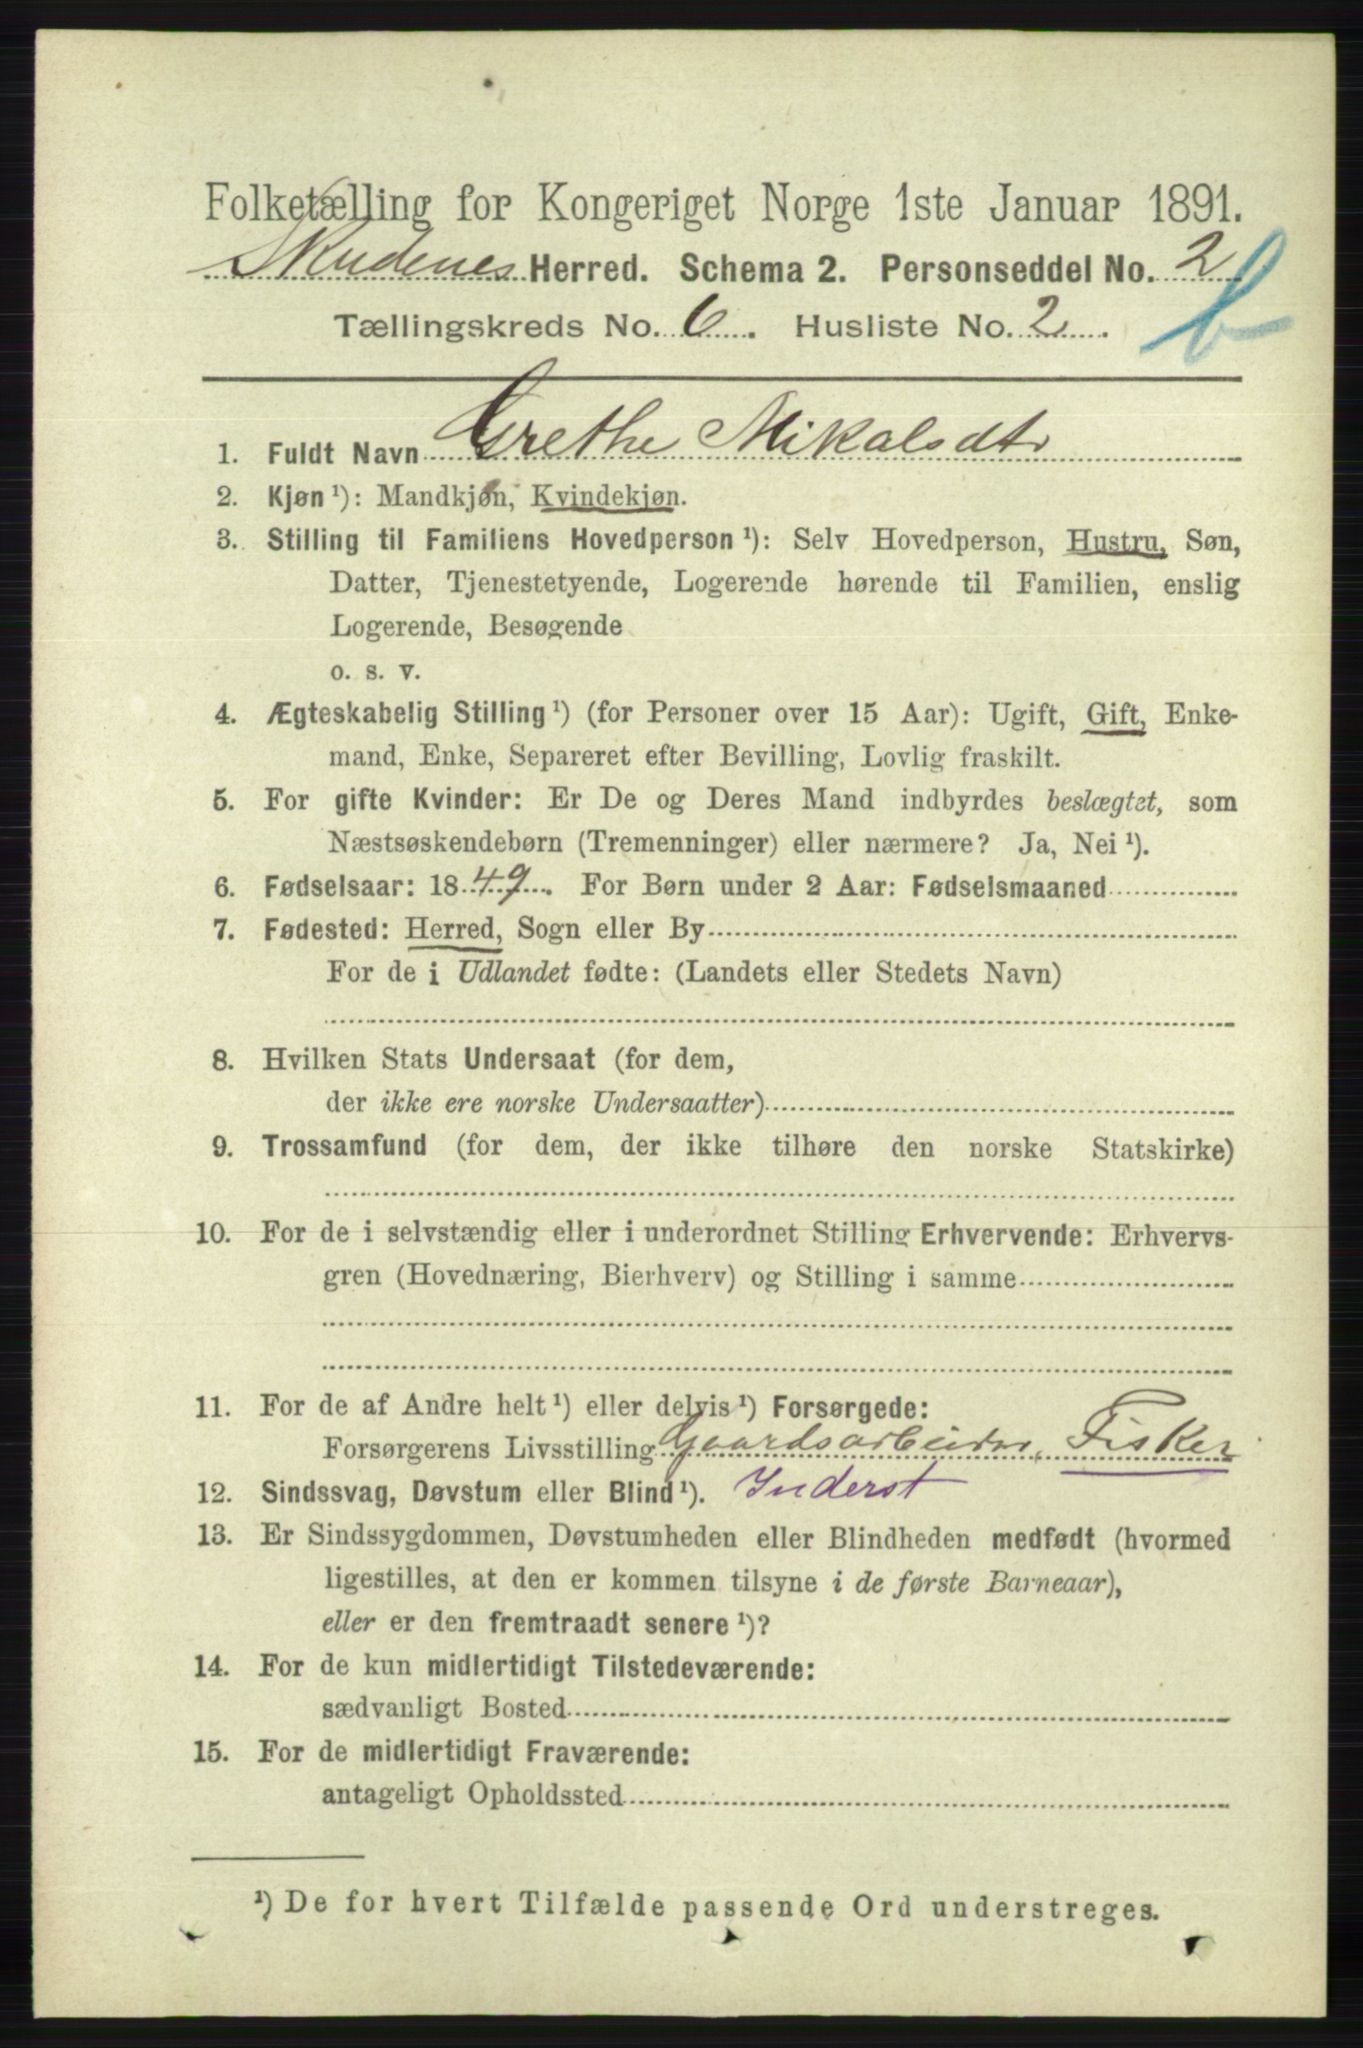 Folketælling for Kongeriget Norge 1ste Januar 1891.
Skudenes Herred. Schema 2. Personseddel No. 2
b
Tællingskreds No. 6. Husliste No. 2.
1. Fuldt Navn Grethe Mikalsdtr
2. Kjøn ¹): Mandkjøn, Kvindekjøn.
3. Stilling til Familiens Hovedperson ¹): Selv Hovedperson, Hustru, Søn,
Datter, Tjenestetyende, Logerende hørende til Familien, enslig
Logerende, Besøgende
o. s. v.
4. Ægteskabelig Stilling ¹) (for Personer over 15 Aar): Ugift, Gift, Enke-
mand, Enke, Separeret efter Bevilling, Lovlig fraskilt.
5. For gifte Kvinder: Er De og Deres Mand indbyrdes beslægtet, som
Næstsøskendebørn (Tremenninger) eller nærmere? Ja, Nei ¹).
6. Fødselsaar: 1849. For Børn under 2 Aar: Fødselsmaaned
7. Fødested: Herred, Sogn eller By
For de i Udlandet fødte: (Landets eller Stedets Navn)
8. Hvilken Stats Undersaat (for dem,
der ikke ere norske Undersaatter)
9. Trossamfund (for dem, der ikke tilhøre den norske Statskirke)
10. For de i selvstændig eller i underordnet Stilling Erhvervende: Erhvervs-
gren (Hovednæring, Bierhverv) og Stilling i samme
11. For de af Andre helt ¹) eller delvis ¹) Forsørgede:
Forsørgerens Livsstilling Gaardsarbeider, Fisker
12. Sindssvag, Døvstum eller Blind ¹). Inderst
13. Er Sindssygdommen, Døvstumheden eller Blindheden medfødt (hvormed
ligestilles, at den er kommen tilsyne i de første Barneaar),
eller er den fremtraadt senere ¹)?
14. For de kun midlertidigt Tilstedeværende:
sædvanligt Bosted
15. For de midlertidigt Fraværende:
antageligt Opholdssted
¹) De for hvert Tilfælde passende Ord understreges.